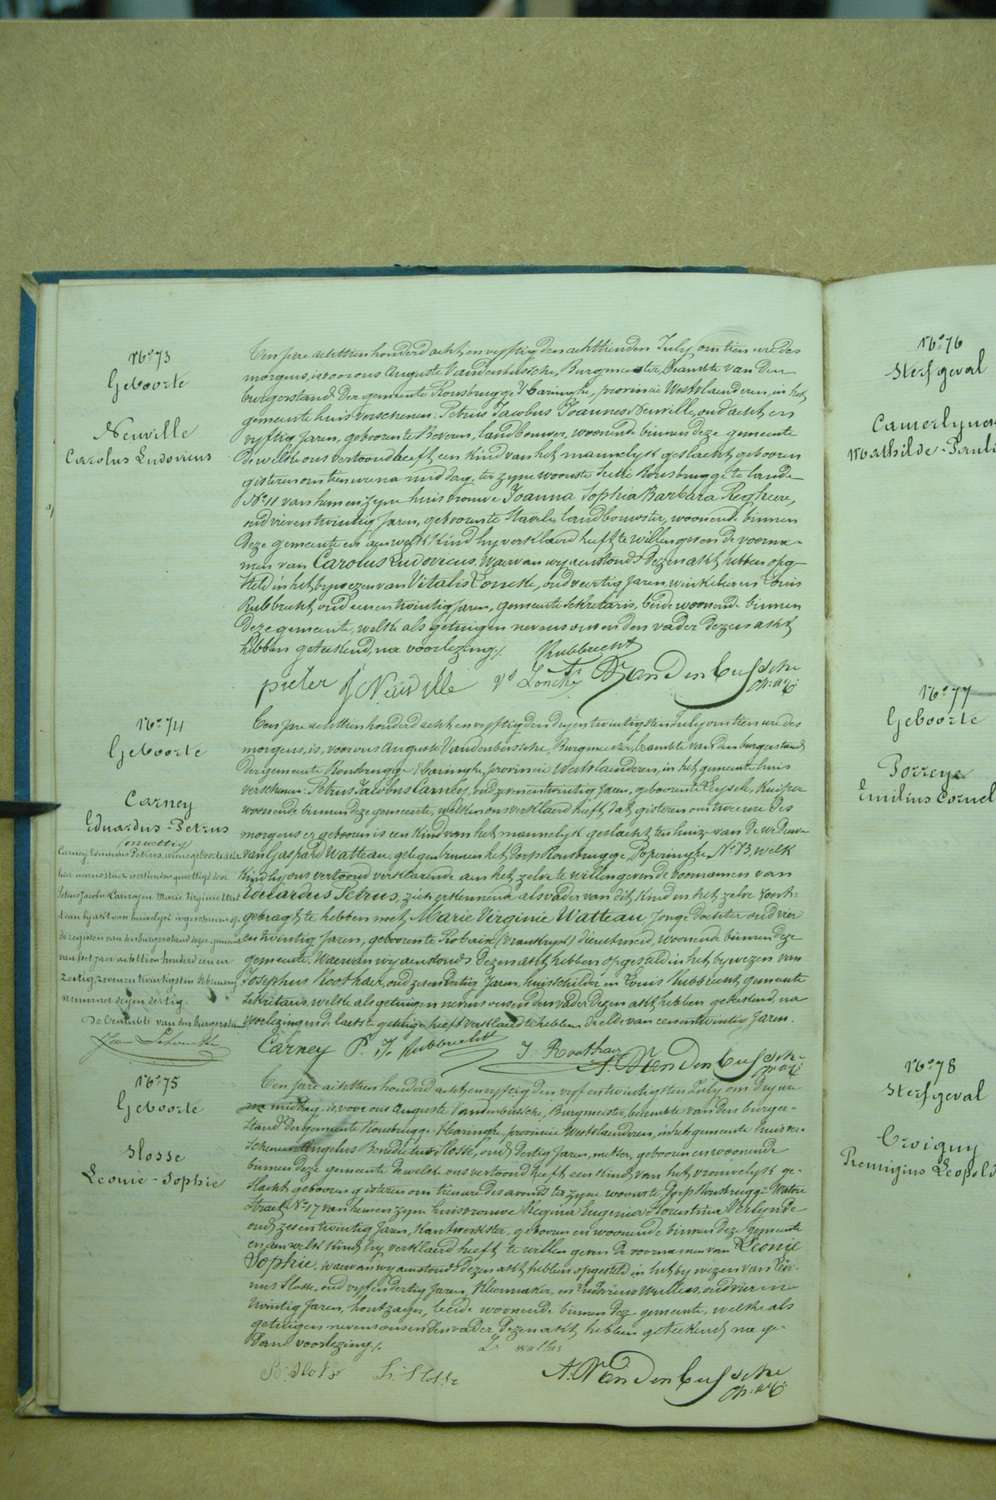 N° 73
Geboorte
Neuville
Carolus Ludovicus
Ten jare achttien honderd acht en vyftig den achttienden July, om tien ure des
morgens, is voor ons Auguste Vandenbussche, Burgmeester, beambte van den
burgerstand der gemeente Rousbrugge-Haringhe, provincie Westvlaanderen, in het
gemeente huis verschenen Petrus Jacobus Joannes Neuville, oud acht en
vyftig Jaren, geboren te Beveren, landbouwer, woonende binnen deze gemeente
de welke ons vertoond heeft een kind van het mannelyk geslacht, geboren
gisteren om tien ure na middag, ter zyne woonste Rousbrugge te lande
N° 11 van hem en zyne huisvrouwe Joanna Sophia Barbara Reghere,
oud vier en twintig Jaren, geboren te Stavele, landbouwster, woonende binnen
deze gemeente en aen welk kind hy verklaerd heeft te willen geven de voorna-
men van Carolus Ludovicus. Waer van wy aenstonds dezen akt hebben opge-
steld in het bywezen van Vitalis Loncke, oud veertig Jaren, winkelier en Louis
Rubbrecht oud een en twintig Jaren, gemeente sekretaris, beide woonende binnen
deze gemeente, welke als getuigen nevens ons en den vader dezen akt
hebben geteekend, na voorlezing /.
Rubbrecht
pieter J Neuville Vs Loncke A. VandenBussche
N° 74
Geboorte
Carney
Eduardus-Petrus
(onwettig)
Carney Eduardus Petrus
Petrus Jacobus Carney en Marie Virginie Wat
de registers van den burgerstand dezer gemeente
van het jaar achttien honderd een en
zestig, zeven en twintigsten February
nummer dry en dertig.
De beambte van den burgerstand
Ten jare achttien honderd acht en vyftig den dry en twintigsten July om tien ure des
morgens, is voor ons Auguste Vandenbussche, Burgmeester, beambte van den burgerstand
der gemeente Rousbrugge-Haringhe, provincie Westvlaanderen, in het gemeente huis
verschenen Petrus Jacobus Carney, oud zeven en twintig Jaren, geboren te Leysele, kuiper
woonende binnen deze gemeente, welken ons verklaerd heeft dat gisteren om twee ure des
morgens er geboren is een kind van het mannelyk geslacht, ten huize van de we Dewe
van Gaspard Watteau, gelegen binnen het dorp Rousbrugge, Poperinghe N° 13, welk
kind hy ons vertoond verklarende aen het zelve te willen geven de voornamen van
Eduardus Petrus, zich erkennende als vader van dit kind en het zelve voort-
gebragt te hebben met Marie Virginie Watteau, Jonge dochter oud vier
en twintig Jaren, geboren te Roubaix (Vrankryk) dienstmeid, woonende binnen deze
gemeente. Waervan wy aenstonds dezen akt hebben opgesteld in het bywezen van
Josephus Roothaer, oud zes en dertig Jaren, huisschilder en Louis Rubbrecht, gemeente
sekretaris, welke als getuigen nevens ons en den vader dezen akt hebben geteekend, na
voorlezing en de laetste getuige heeft verklaerd te hebben d'oude van een en twintig Jaren.
Carney P. J. Rubbrecht J. Roothaer A. VandenBussche
N° 75
Geboorte
Slosse
Leonie-Sophie
Ten jare achttien honderd acht en vyftig den vyf en twintigsten July om dry ure
na middag, is voor ons Auguste Vandenbussche, Burgmeester, beambte van den burger-
stand der gemeente Rousbrugge-Haringhe, provincie Westvlaanderen, in het gemeente huis ver-
schenen Angelus Benedictus Slosse, oud dertig Jaren, metser, geboren en woonende
binnen deze gemeente de welke ons vertoond heeft een kind van het vrouwelyk ge-
slacht, geboren gisteren om tien ure des avonds te zyne woonste dorp Rousbrugge Watou
straet N° 17 van hem en zyne huisvrouwe Regina Eugenia Florentina Verlynde
oud zes en twintig Jaren, kantwerkster, geboren en woonende binnen deze gemeente
en aen welk kind hy verklaerd heeft te willen geven de voornamen van Leonie
Sophie. waervan wy aenstonds dezen akt hebben opgesteld in het bywezen van
Slosse, oud vyf en dertig Jaren, kleermaker, en Ludovicus Wullus, oud vier en
twintig Jaren, houtzager, beide woonende binnen deze gemeente, welke als
getuigen nevens ons en den vader dezen akt hebben geteekend, na ge-
dane voorlezing /.
B. Slosse S. Slosse A. VandenBussche
N° 76
Sterfgeval
Camerlynck
Mathilde-Pauli
N° 77
Geboorte
Porreye
Emilius Cornel
N° 78
Sterfgeval
Croigny
Remigius Leopold